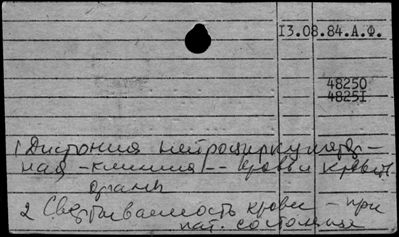 13.08.84.А.Ф.
48250
48251
1 Дистония нейроциркулятор-
ная - клиника -- крови
органы
2 Свертываемость крови - при
пат. состояние